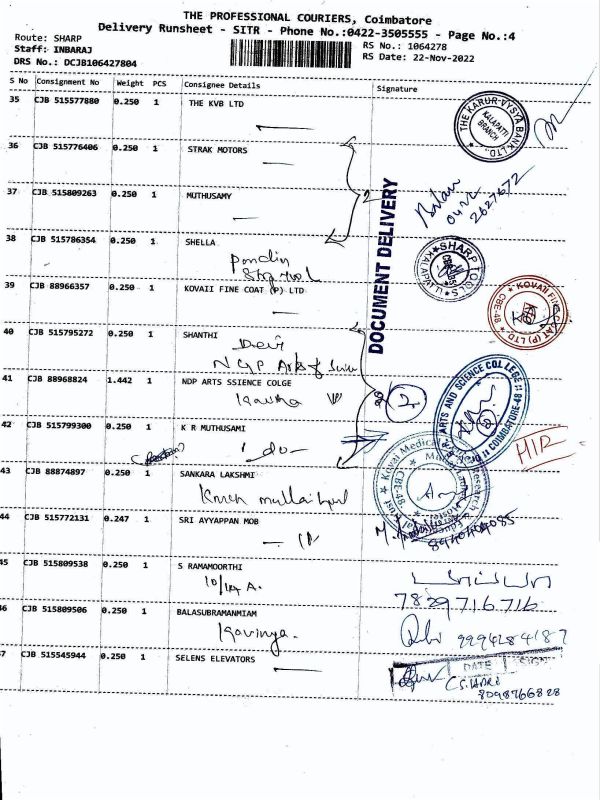 THE PROFESSIONAL COURIERS, Coimbatore
Delivery Runsheet - SITR - Phone No.:0422-3505555 - Page No.:4
Route: SHARP
Staff: INBARAJ
DRS No.: DCJB106427804
RS No.: 1064278
RS Date: 22-Nov-2022
S No Consignment No Weight PCS Consignee Details Signature
35 CJB 515577880 0.250 1 THE KVB LTD
THE KARUR VYSYA BANK LTD. KALAPATTI BRANCH
36 CJB 515776406 0.250 1 STRAK MOTORS
37 CJB 515809263 0.250 1 MUTHUSAMY
2627672
DOCUMENT DELIVERY
38 CJB 515786354 0.250 1 SHELLA
SHARP TOOLS KALAPATTI
39 CJB 88966357 0.250 1 KOVAII FINE COAT (P) LTD
KOVAI FINE COAT (P) LTD CBE-48
40 CJB 515795272 0.250 1 SHANTHI
Devi
NGP Arts & Scien
41 CJB 88968824 1.442 1 NDP ARTS SSIENCE COLGE
Kavitha
2
ARTS AND SCIENCE COLLEGE COIMBATORE-48
42 CJB 515799300 0.250 1 K R MUTHUSAMI
-do-
HIR
Kovai Medical Research CBE-48
43 CJB 88874897 0.250 1 SANKARA LAKSHMI
44 CJB 515772131 0.247 1 SRI AYYAPPAN MOB
45 CJB 515809538 0.250 1 S RAMAMOORTHI
10/14 A.
7829716716
46 CJB 515809506 0.250 1 BALASUBRAMANMIAM
Kavinya.
9994284187
47 CJB 515545944 0.250 1 SELENS ELEVATORS
DATE SIGN
8098766828